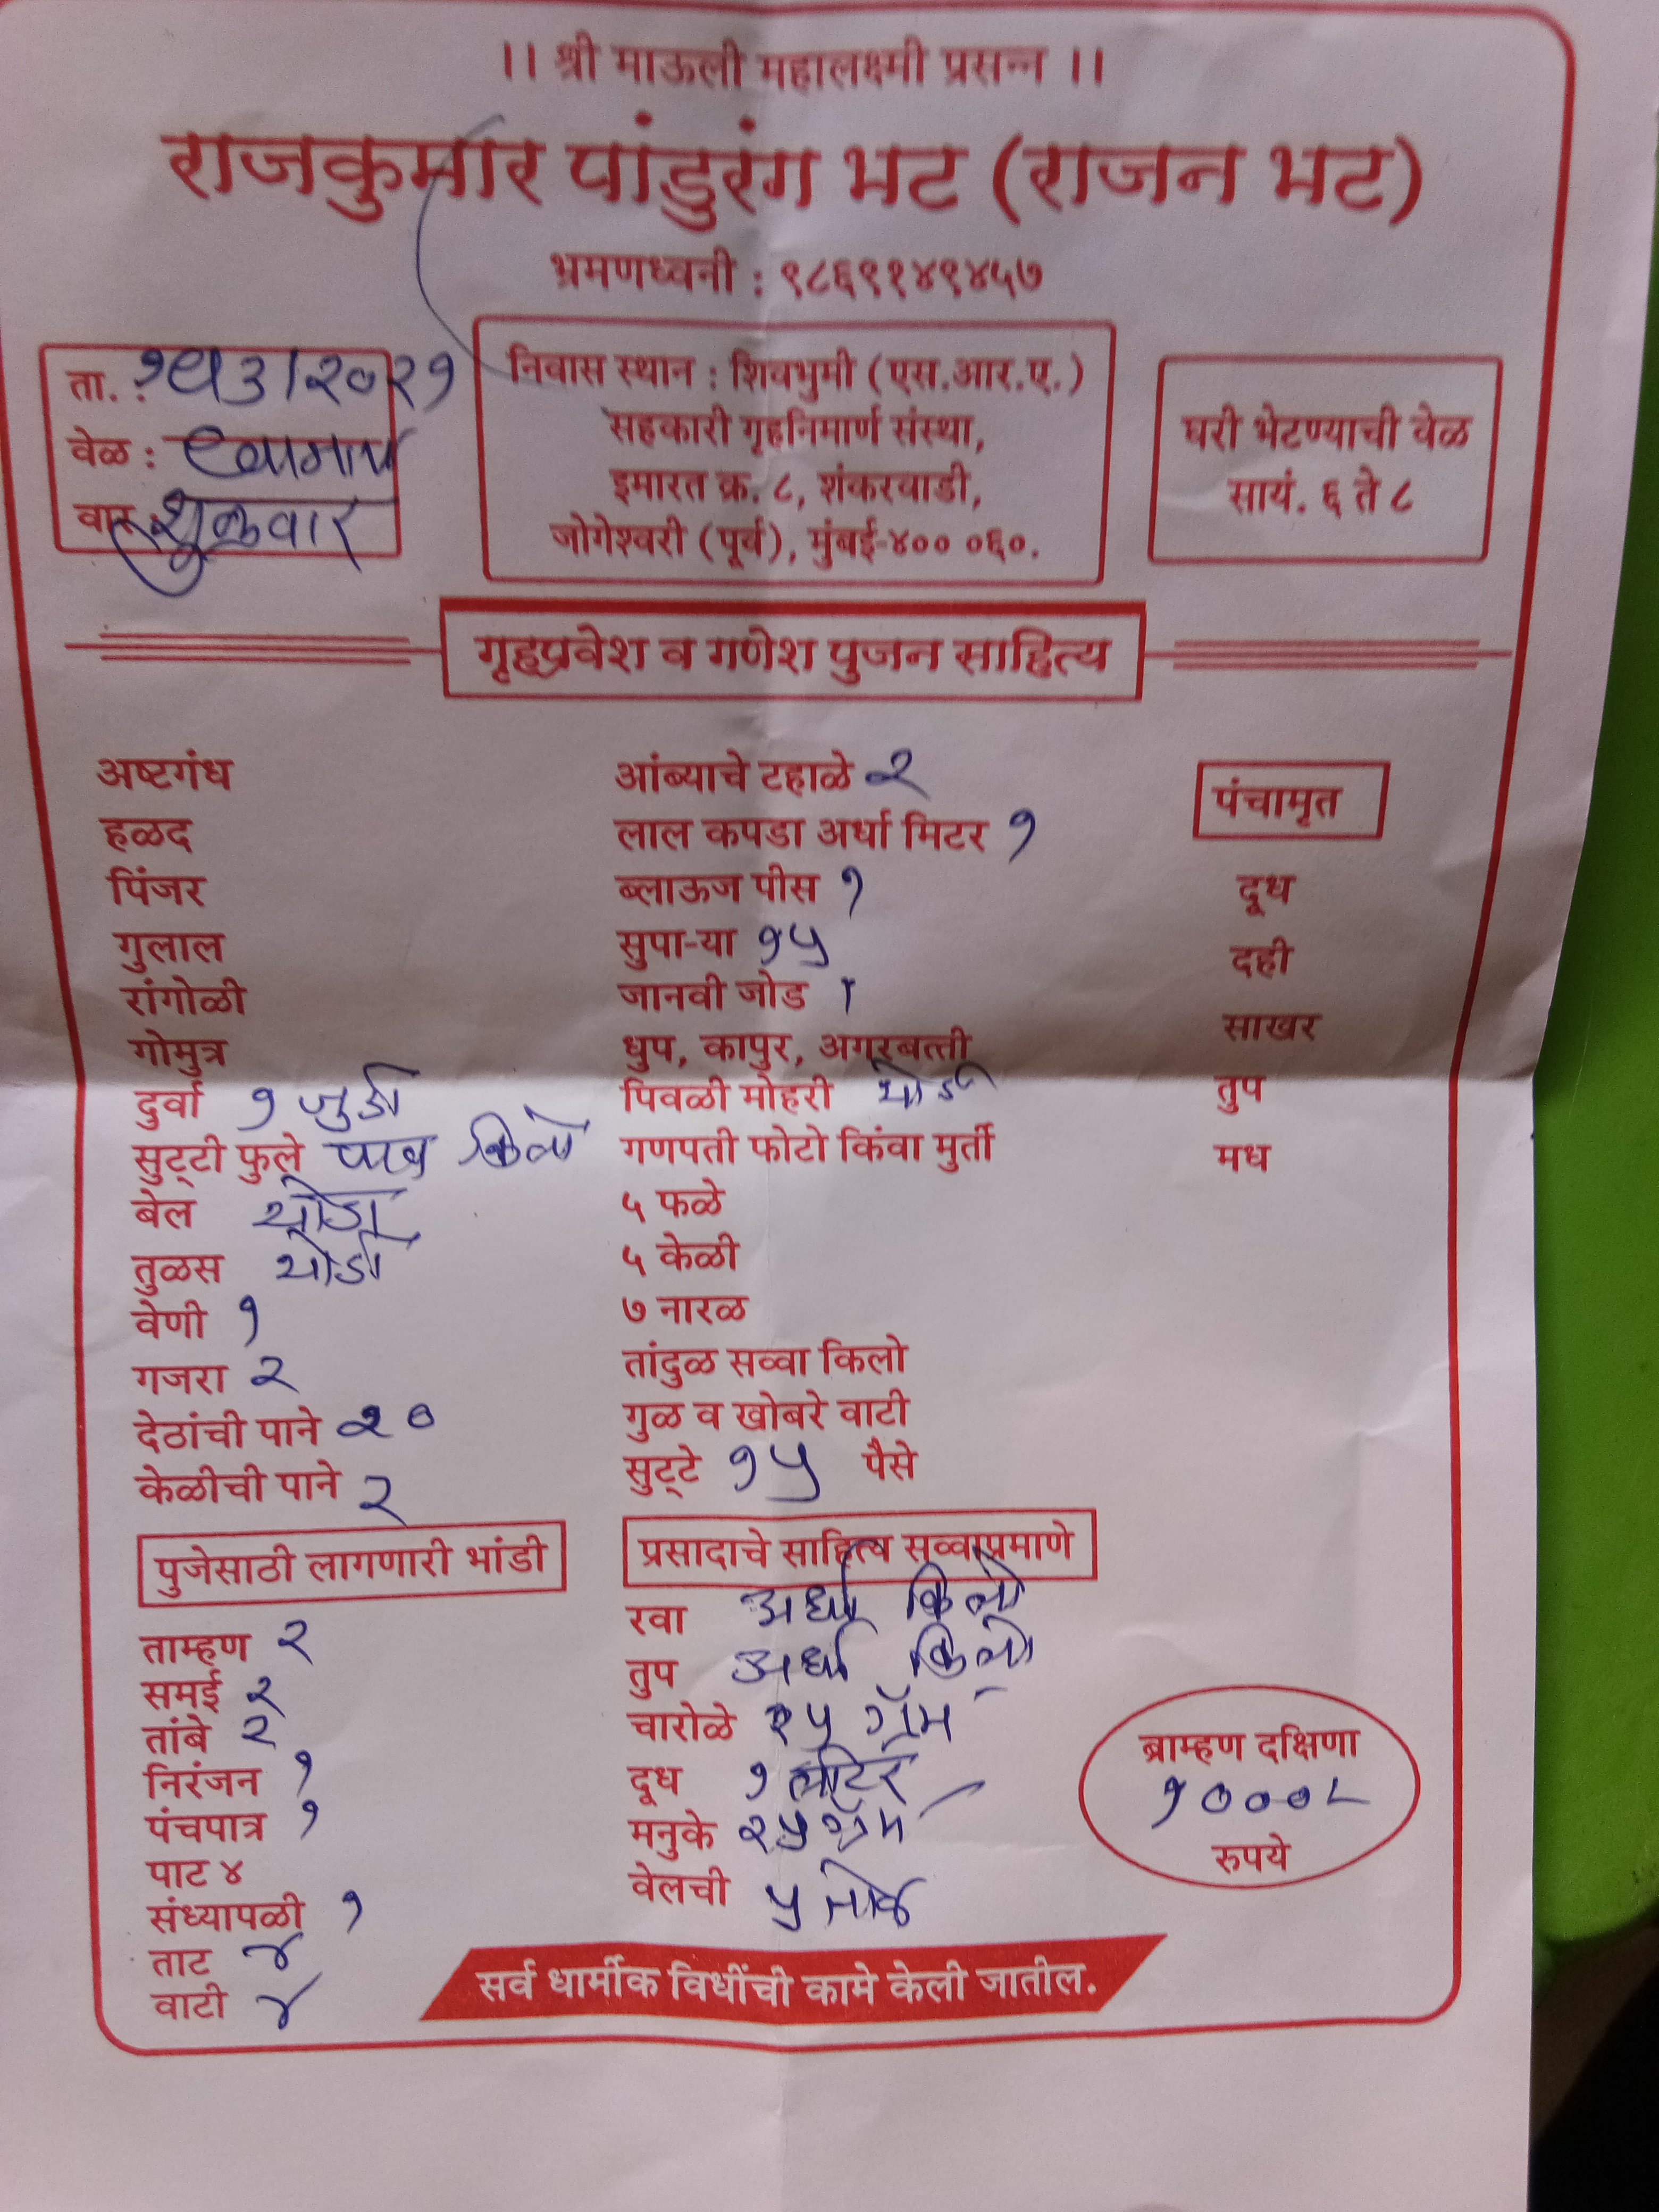 ।। श्री माऊली महालक्ष्मी प्रसन्न ।।
राजकुमार पांडुरंग भट (राजन भट)
भ्रमणध्वनी : ९८६९१४९४५७
ता. :
वेळ :
वार : शुक्रवार
निवास स्थान : शिवभुमी (एस.आर.ए.)
सहकारी गृहनिमार्ण संस्था,
इमारत क्र. ८, शंकरवाडी,
जोगेश्वरी (पूर्व), मुंबई-४०० ०६०.
घरी भेटण्याची वेळ
सायं. ६ ते ८
गृहप्रवेश व गणेश पुजन साहित्य
अष्टगंध
हळद
पिंजर
गुलाल
रांगोळी
गोमुत्र
दुर्वा १ जुडी
सुट्टी फुले पाव किलो
बेल थोडा
तुळस थोडी
वेणी १
गजरा २
देठांची पाने २०
केळीची पाने २
आंब्याचे टहाळे २
लाल कपडा अर्धा मिटर १
ब्लाऊज पीस १
सुपा-या १५
जानवी जोड १
धुप, कापुर, अगरबत्ती
पिवळी मोहरी थोडी
गणपती फोटो किंवा मुर्ती
५ फळे
५ केळी
७ नारळ
तांदुळ सव्वा किलो
गुळ व खोबरे वाटी
सुट्टे १५ पैसे
पंचामृत
दूध
दही
साखर
तुप
मध
पुजेसाठी लागणारी भांडी
ताम्हण २
समई २
तांबे २
निरंजन १
पंचपात्र १
पाट ४
संध्यापळी १
ताट ४
वाटी ४
प्रसादाचे साहित्य सव्वाप्रमाणे
रवा अर्धा किलो
तुप अर्धा किलो
चारोळे २५ ग्रॅम
दूध १ लीटर
मनुके २५ ग्रॅम
वेलची ५
ब्राम्हण दक्षिणा
रुपये
सर्व धार्मीक विधींची कामे केली जातील.